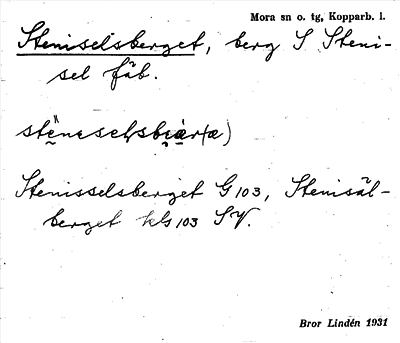 Mora sn o. tg, Kopparb. l.
Stenisselsberget, berg S Steni-
sel fäb.
Stenisselsberget G 103, Stenisäl-
berget kls 103 SV.
Bror Lindén 1931